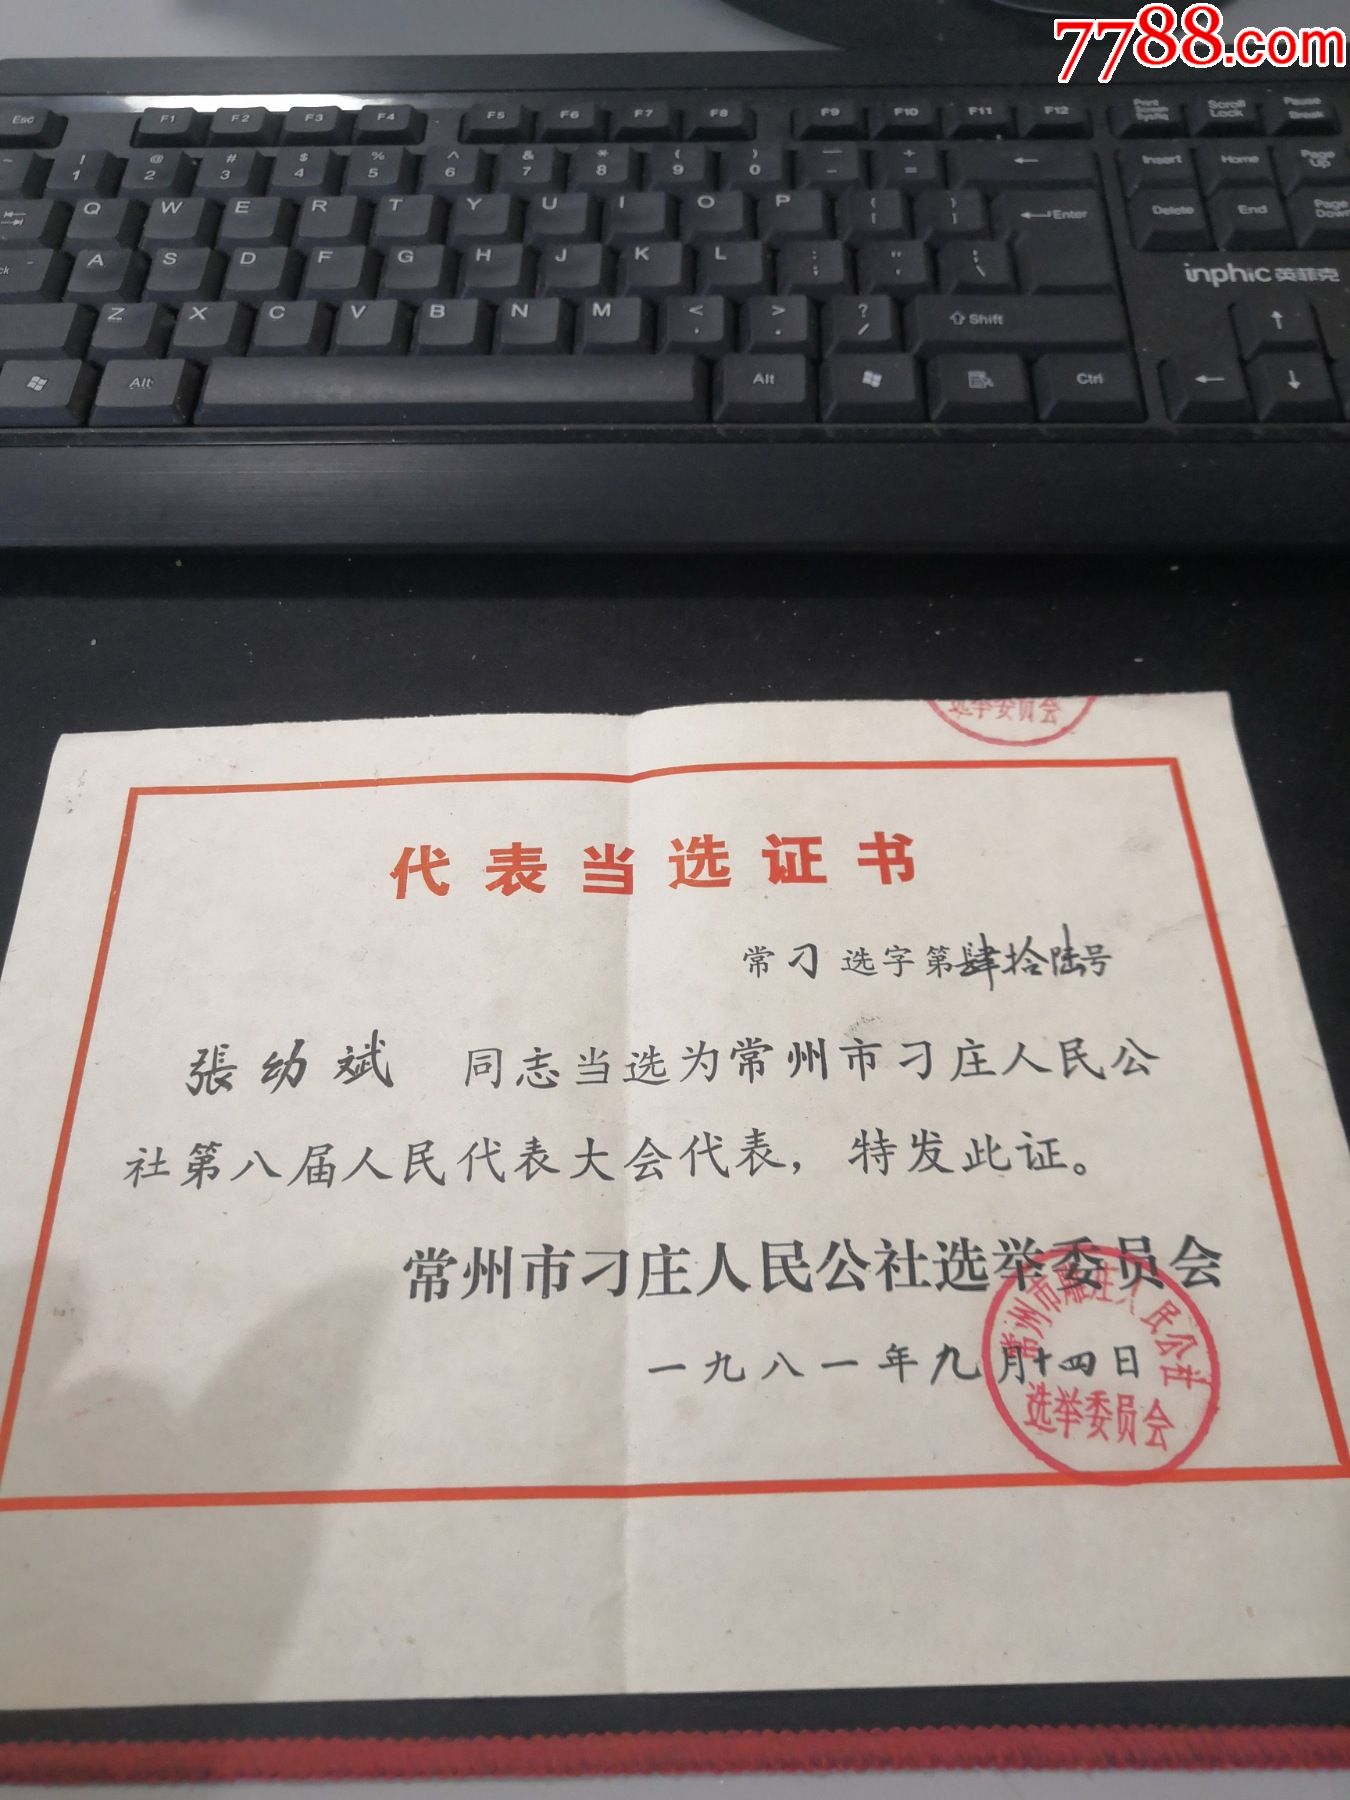 7788.com
Esc F1 F2 F3 F4 F5 F6 F7 F8 F9 F10 F11 F12 Print Screen SysRq Scroll Lock Pause Break
~ ! 1 @ 2 # 3 $ 4 % 5 ^ 6 & 7 * 8 ( 9 ) 0 — - + = ← Insert Home Page Up
Q W E R T Y U I O P { [ } ] ←Enter Delete End Page Down
A S D F G H J K L : ; " ' | \
inphic 英菲克
Z X C V B N M < , > . ? / ⇧Shift ↑
Alt Alt Ctrl ← ↓
选举委员会
代表当选证书
常刁选字第肆拾陆号
張幼斌 同志当选为常州市刁庄人民公
社第八届人民代表大会代表，特发此证。
常州市刁庄人民公社选举委员会
一九八一年九月十四日
常州市雕庄人民公社
选举委员会